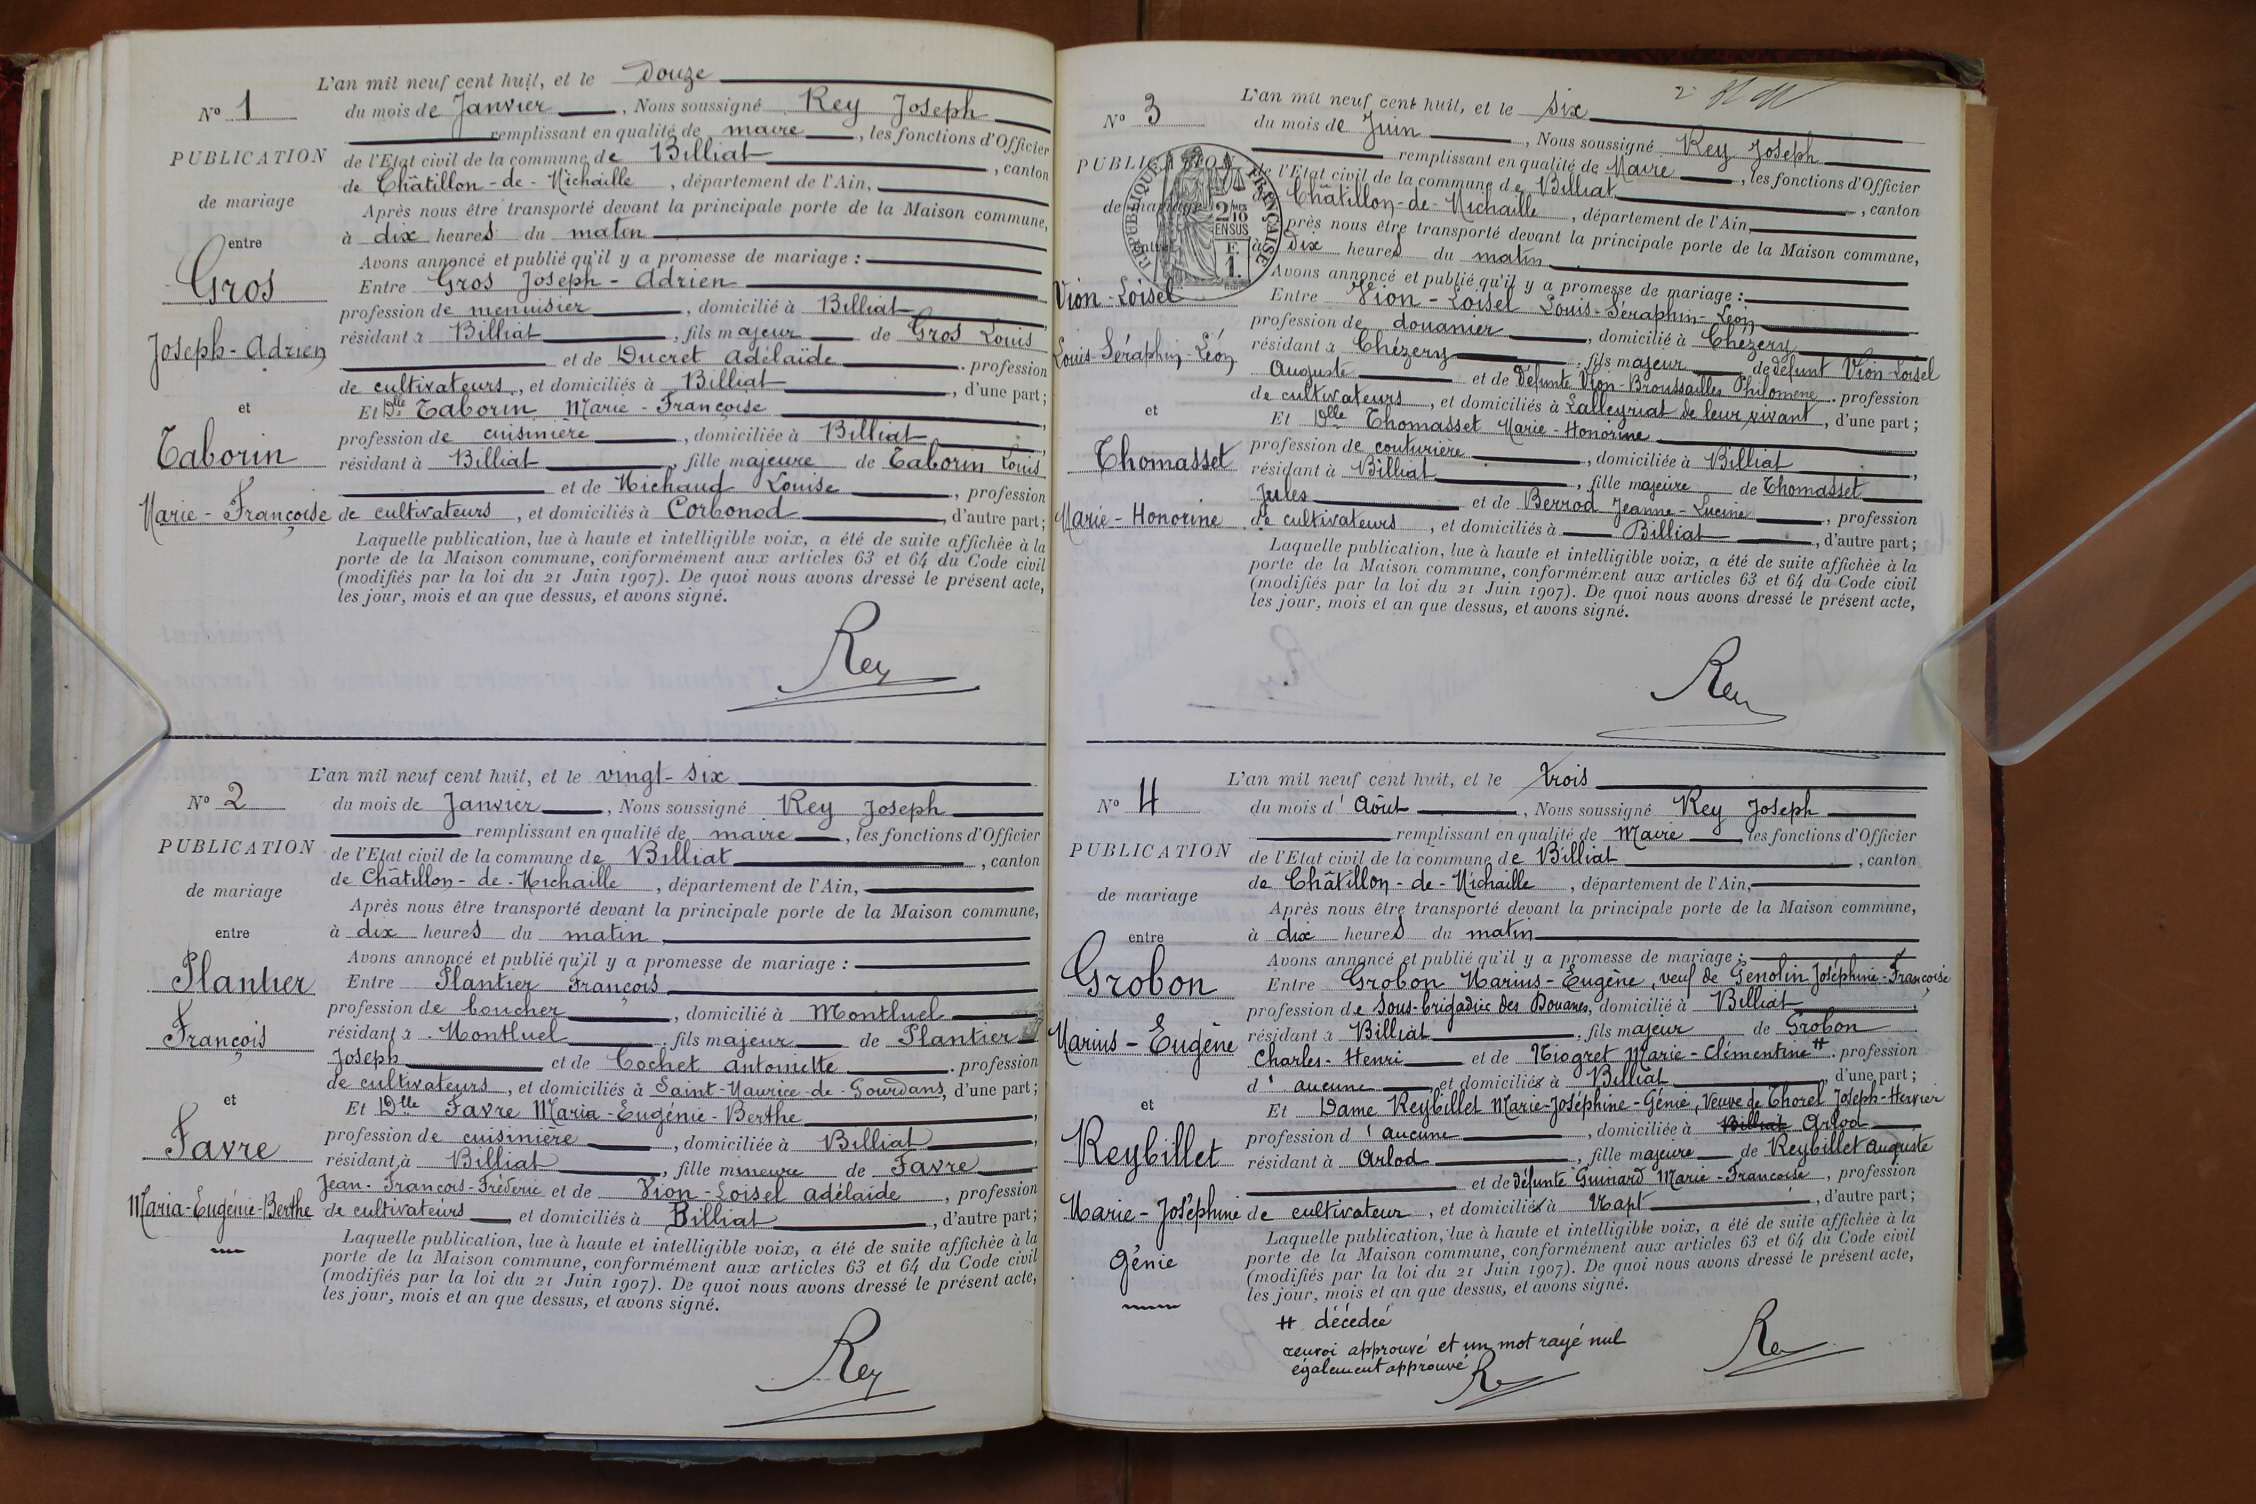 L'an mil neuf cent huit, et le douze
N° 1
du mois de Janvier, Nous soussigné Rey Joseph
remplissant en qualité de maire, les fonctions d'Officier
PUBLICATION
de l'Etat civil de la commune de Billiat, canton
de Châtillon-de-Michaille, département de l'Ain,
de mariage
Après nous être transporté devant la principale porte de la Maison commune,
à dix heures du matin
entre
Avons annoncé et publié qu'il y a promesse de mariage :
Gros
Entre Gros Joseph-Adrien
profession de menuisier, domicilié à Billiat,
Joseph-Adrien
résidant à Billiat, fils majeur de Gros Louis
et de Ducret Adélaïde. profession
de cultivateurs, et domiciliés à Billiat, d'une part ;
et
Et Dlle Taborin Marie-Françoise,
profession de cuisinière, domiciliée à Billiat,
Taborin
résidant à Billiat, fille majeure de Taborin Louis
et de Michaud Louise, profession
Marie-Françoise
de cultivateurs, et domiciliés à Corbonod, d'autre part ;
Laquelle publication, lue à haute et intelligible voix, a été de suite affichée à la
porte de la Maison commune, conformément aux articles 63 et 64 du Code civil
(modifiés par la loi du 21 Juin 1907). De quoi nous avons dressé le présent acte,
les jour, mois et an que dessus, et avons signé.
Rey
L'an mil neuf cent huit, et le vingt-six
N° 2
du mois de Janvier, Nous soussigné Rey Joseph
remplissant en qualité de maire, les fonctions d'Officier
PUBLICATION
de l'Etat civil de la commune de Billiat, canton
de Châtillon-de-Michaille, département de l'Ain,
de mariage
Après nous être transporté devant la principale porte de la Maison commune,
entre
à dix heures du matin
Avons annoncé et publié qu'il y a promesse de mariage :
Plantier
Entre Plantier François
profession de boucher, domicilié à Montluel
François
résidant à Montluel, fils majeur de Plantier
Joseph et de Cochet Antoinette. profession
de cultivateurs, et domiciliés à Saint-Maurice-de-Gourdans, d'une part ;
et
Et Dlle Favre Maria-Eugénie-Berthe,
profession de cuisinière, domiciliée à Billiat,
Favre
résidant à Billiat, fille mineure de Favre
Jean-François-Fréderic et de Vion-Loisel Adélaïde, profession
Maria-Eugénie-Berthe
de cultivateurs et domiciliés à Billiat, d'autre part ;
Laquelle publication, lue à haute et intelligible voix, a été de suite affichée à la
porte de la Maison commune, conformément aux articles 63 et 64 du Code civil
(modifiés par la loi du 21 Juin 1907). De quoi nous avons dressé le présent acte,
les jour, mois et an que dessus, et avons signé.
Rey
2
L'an mil neuf cent huit, et le six
N° 3
du mois de Juin, Nous soussigné Rey Joseph
remplissant en qualité de Maire, les fonctions d'Officier
PUBLICATION
de l'Etat civil de la commune de Billiat, canton
de Châtillon-de-Michaille, département de l'Ain,
de mariage
RÉPUBLIQUE FRANÇAISE
2/10 EN SUS
F. 1.
Après nous être transporté devant la principale porte de la Maison commune,
entre
à dix heures du matin
Avons annoncé et publié qu'il y a promesse de mariage :
Vion-Loisel
Entre Vion-Loisel Louis-Séraphin-Léon
profession de douanier, domicilié à Chézery
Louis-Séraphin-Léon
résidant à Chézery, fils majeur de défunt Vion-Loisel
Auguste et de défunte Vion-Broussailles Philomène. profession
de cultivateurs, et domiciliés à Lalleyriat de leur vivant, d'une part ;
et
Et Dlle Thomasset Marie-Honorine
profession de couturière, domiciliée à Billiat,
Thomasset
résidant à Billiat, fille majeure de Thomasset
Jules et de Berrod Jeanne-Lucine, profession
Marie-Honorine
de cultivateurs, et domiciliés à Billiat, d'autre part ;
Laquelle publication, lue à haute et intelligible voix, a été de suite affichée à la
porte de la Maison commune, conformément aux articles 63 et 64 du Code civil
(modifiés par la loi du 21 Juin 1907). De quoi nous avons dressé le présent acte,
les jour, mois et an que dessus, et avons signé.
Rey
L'an mil neuf cent huit, et le trois
N° 4
du mois d'Août, Nous soussigné Rey Joseph
remplissant en qualité de Maire les fonctions d'Officier
PUBLICATION
de l'Etat civil de la commune de Billiat, canton
de Châtillon-de-Michaille, département de l'Ain,
de mariage
Après nous être transporté devant la principale porte de la Maison commune,
entre
à dix heures du matin
Avons annoncé et publié qu'il y a promesse de mariage :
Grobon
Entre Grobon Marius-Eugène, veuf de Genolin Joséphine-Françoise
profession de Sous-brigadier des Douanes, domicilié à Billiat,
Marius-Eugène
résidant à Billiat, fils majeur de Grobon
Charles-Henri et de Niogret Marie-Clémentine #. profession
d'aucune, et domiciliés à Billiat, d'une part ;
et
Et Dame Reybillet Marie-Joséphine-Génie, Veuve de Thorel Joseph-Hervier
profession d'aucune, domiciliée à Billiat Arlod
Reybillet
résidant à Arlod, fille majeure de Reybillet Auguste
et de défunte Guinard Marie-Françoise, profession
Marie-Joséphine
de cultivateur, et domiciliés à Napt, d'autre part ;
Génie
Laquelle publication, lue à haute et intelligible voix, a été de suite affichée à la
porte de la Maison commune, conformément aux articles 63 et 64 du Code civil
(modifiés par la loi du 21 Juin 1907). De quoi nous avons dressé le présent acte,
les jour, mois et an que dessus, et avons signé.
# décédée
renvoi approuvé et un mot rayé nul
également approuvé
Rey
Rey